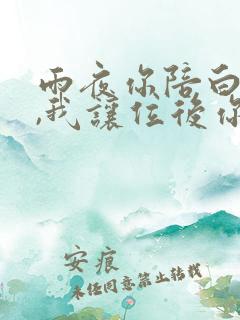 雨夜你陪白
,我讓位後你
安痕
未任同意禁止转载